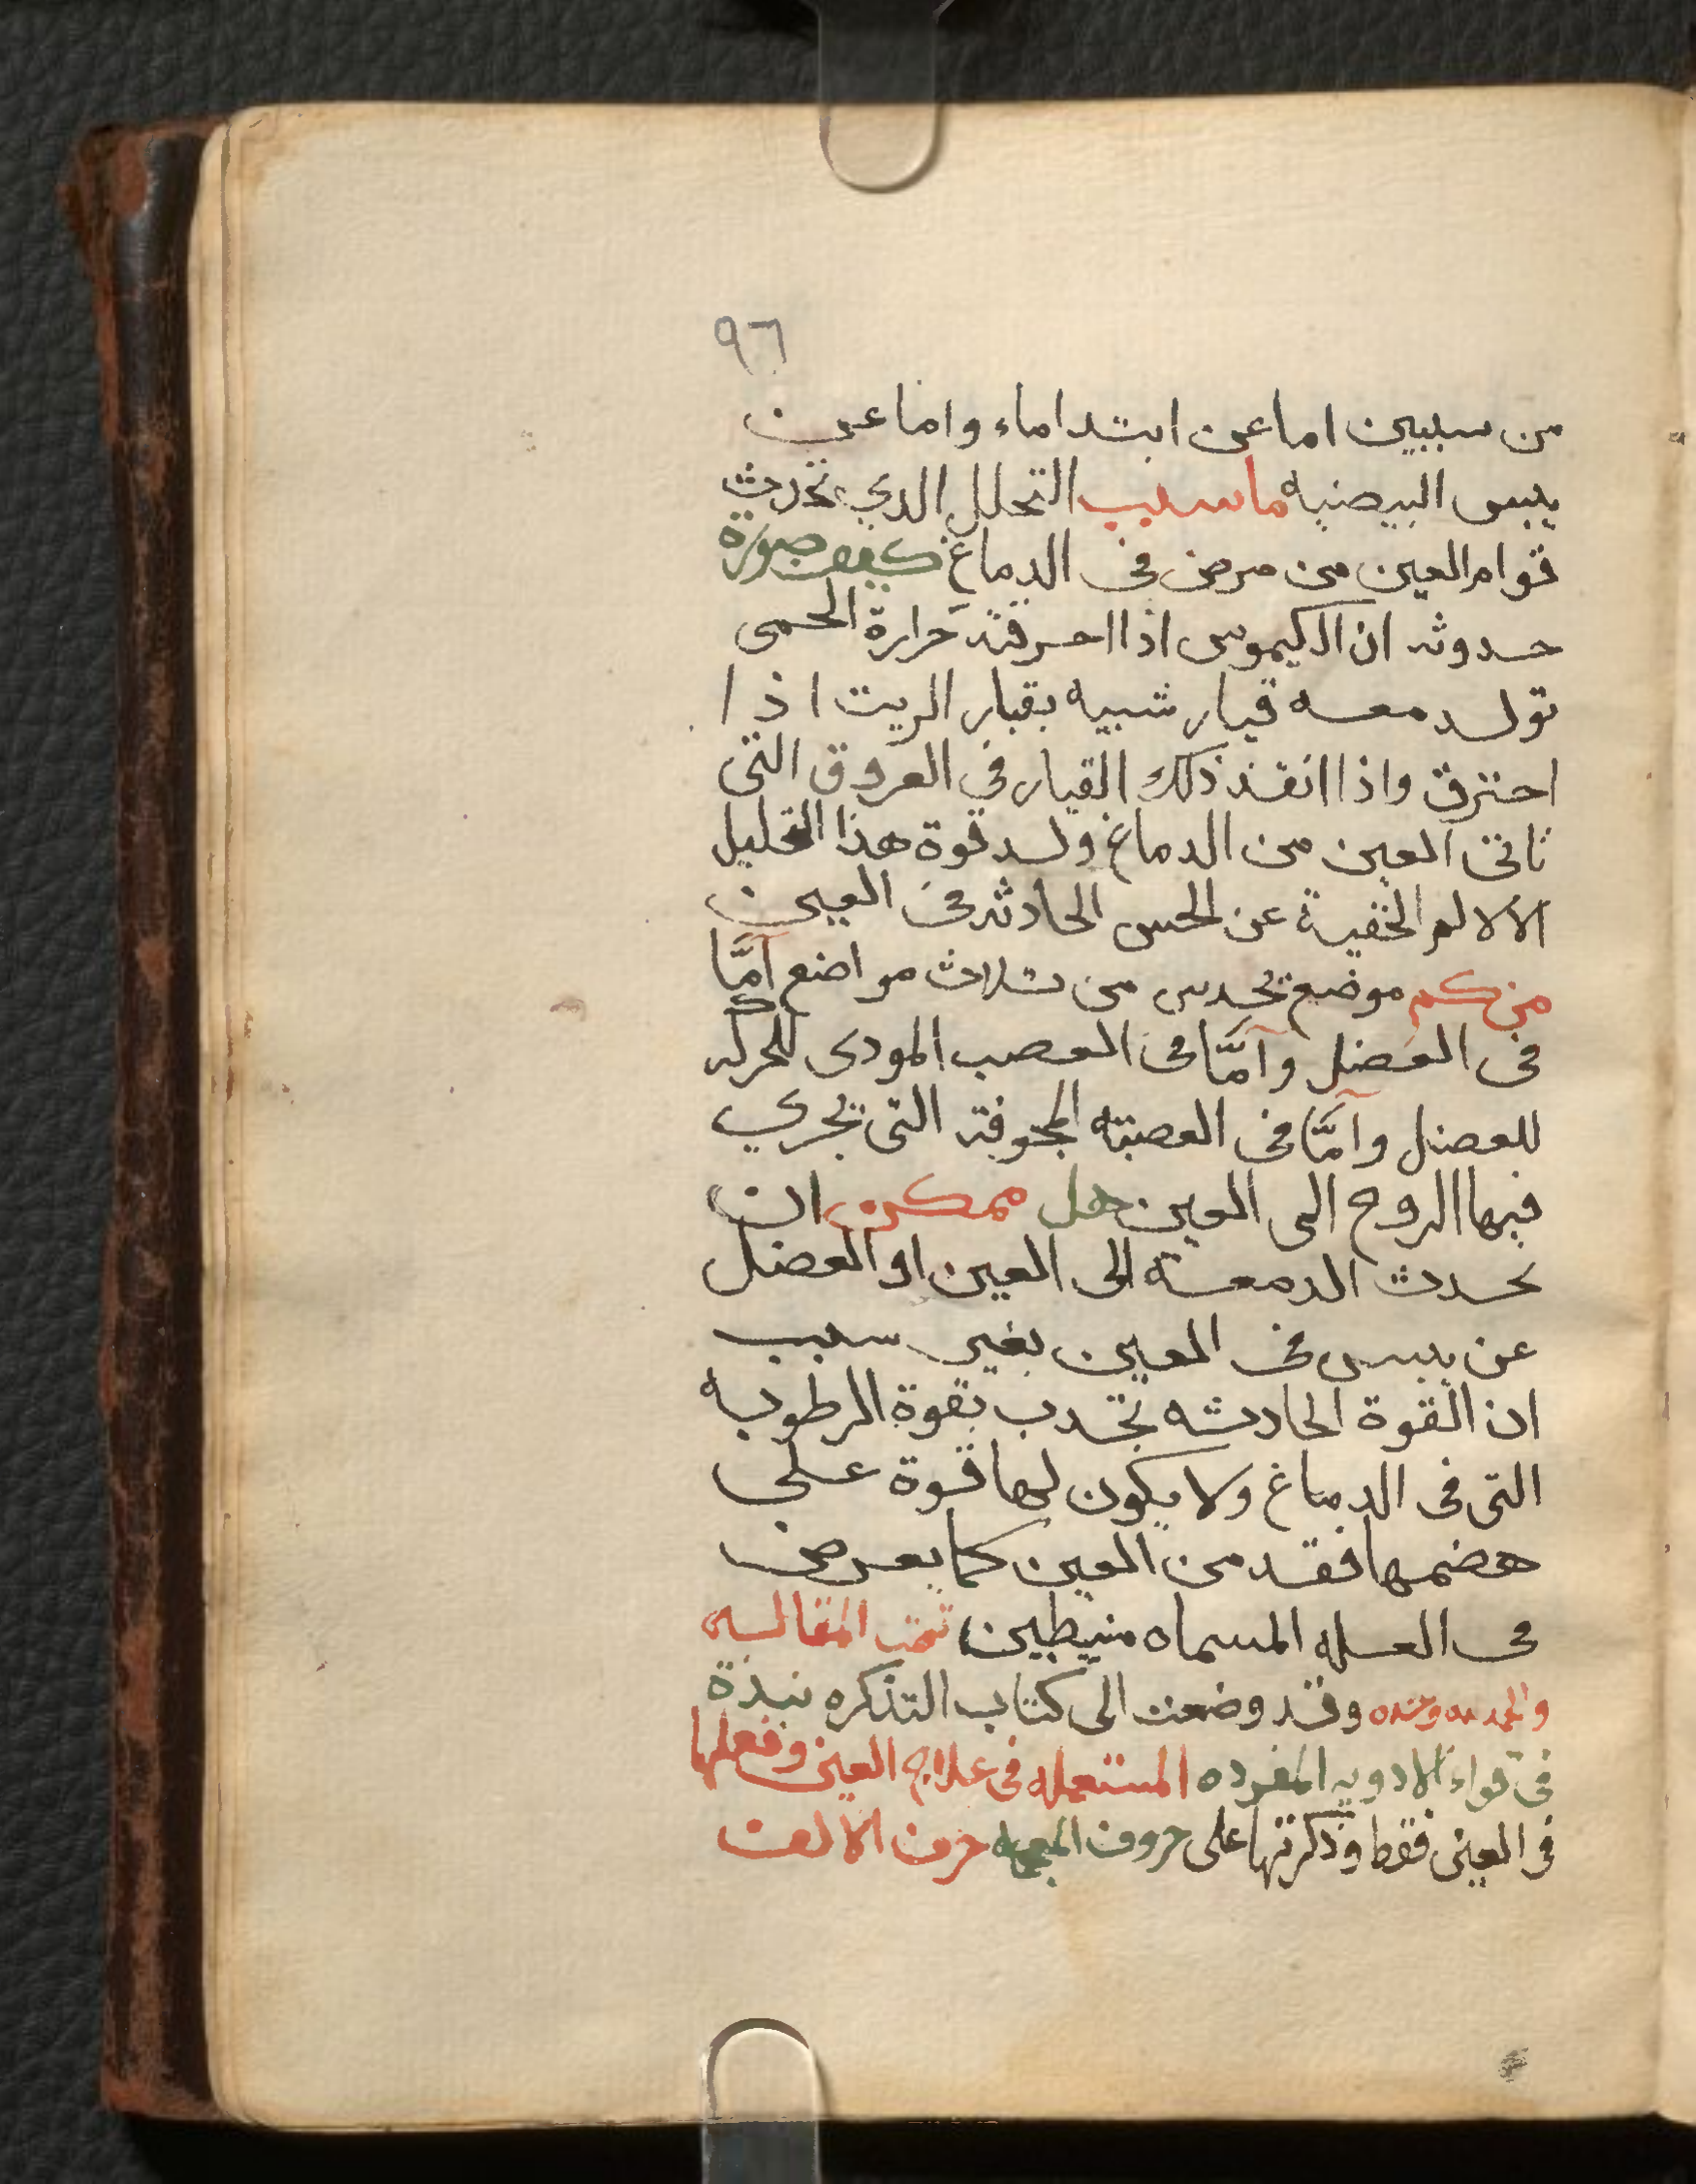 ٩٦
من سببين اما عن ابتدا ماء واما عن
يبس البيضيه ما سبب التحلل الدي تحدث
قوام العين من مرض في الدماغ كيف صورة
حدوثه ان الكيموس اذا احرقته حرارة الحمى
تولد معه قيار شبيه بقبار الزيت اذا
احترق واذا انفذ ذلك القيار في العروق التى
تاتى العين من الدماغ ولد قوة هذا التحليل
الالالم الخفية عن الحس الحادثه فى العين
من كم موضع تحدس من ثلاث مواضع امَّا
فى العضل وامَّا فى العصب المودى للحركه
للعضل وامَّا فى العصبته المجوفة التى تجري
فيها الروح الى العين هل ممكن ان
تحدث الدمعة الى العين او العضل
عن يبس فى العين بغير سبب
ان القوة الحادثه تجدب بقوة الرطوبه
التى فى الدماغ ولا يكون لها قوة على
هضمها فقد من العين كما يعرض
فى العله المسماه منيطبين تمت المقالسه
والحمد لله وحده وقد وضعت الى كتاب التذكره نبذة
فى قواء الادويه المفرده المستعمله فى علاج العين وفعلها
فى العين فقط وذكرتها على حروف المعجمه حرف الالف